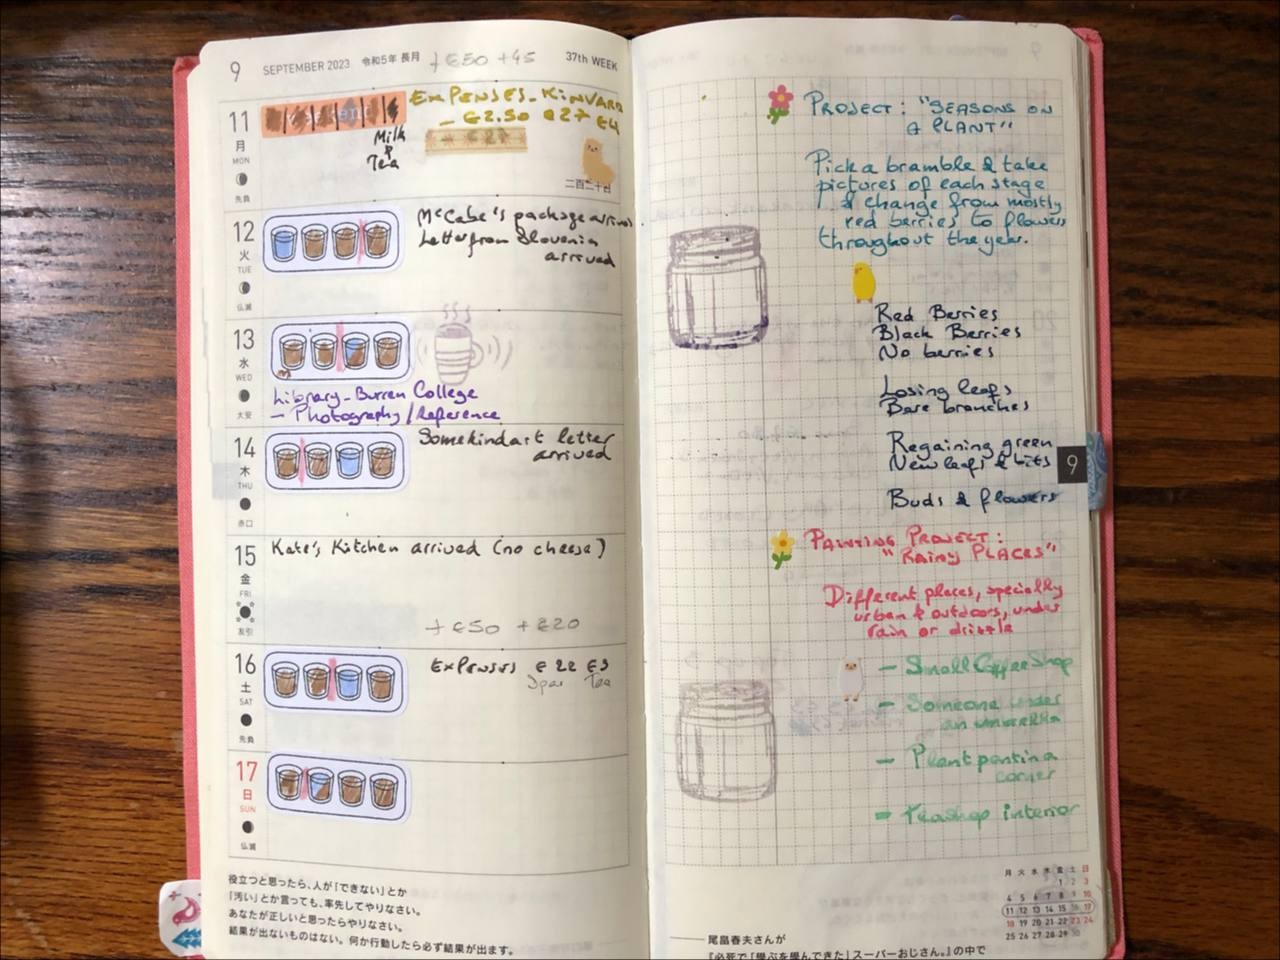 9 SEPTEMBER 2023 令和5年 長月 +€50 +45 37th WEEK
11 月 MON 先負
EXPENSES_KINVARA
- €2.50 €27 €4
€27
Milk
&
Tea
二百二十日
12 火 TUE 仏滅
McCabe's package arrived
Letter from Slovenia
arrived
13 水 WED 大安
Library_Burren College
- Photography/Reference
14 木 THU 赤口
Somekindart letter
arrived
15 金 FRI 友引
Kate's Kitchen arrived (no cheese)
+€50 +€20
16 土 SAT 先負
EXPENSES €22 €3
Spar Tea
17 日 SUN 仏滅
役立つと思ったら、人が「できない」とか
「汚い」とか言っても、率先してやりなさい。
あなたが正しいと思ったらやりなさい。
結果が出ないものはない。何か行動したら必ず結果が出ます。
PROJECT: "SEASONS ON
A PLANT"
Pick a bramble & take
pictures of each stage
& change from mostly
red berries to flowers
throughout the year.
Red Berries
Black Berries
No berries
Losing leafs
Bare branches
Regaining green
New leafs & bits
Buds & flowers
9
PAINTING PROJECT:
"RAINY PLACES"
Different places, specially
urban & outdoors, under
rain or drizzle
- Small Coffee Shop
- Someone under
an umbrella
- Plant pant in a
corner
- Teashop interior
月 火 水 木 金 土 日
1 2 3
4 5 6 7 8 9 10
11 12 13 14 15 16 17
18 19 20 21 22 23 24
25 26 27 28 29 30
尾畠春夫さんが
『必死で「學ぶを學んできた」スーパーおじさん。』の中で